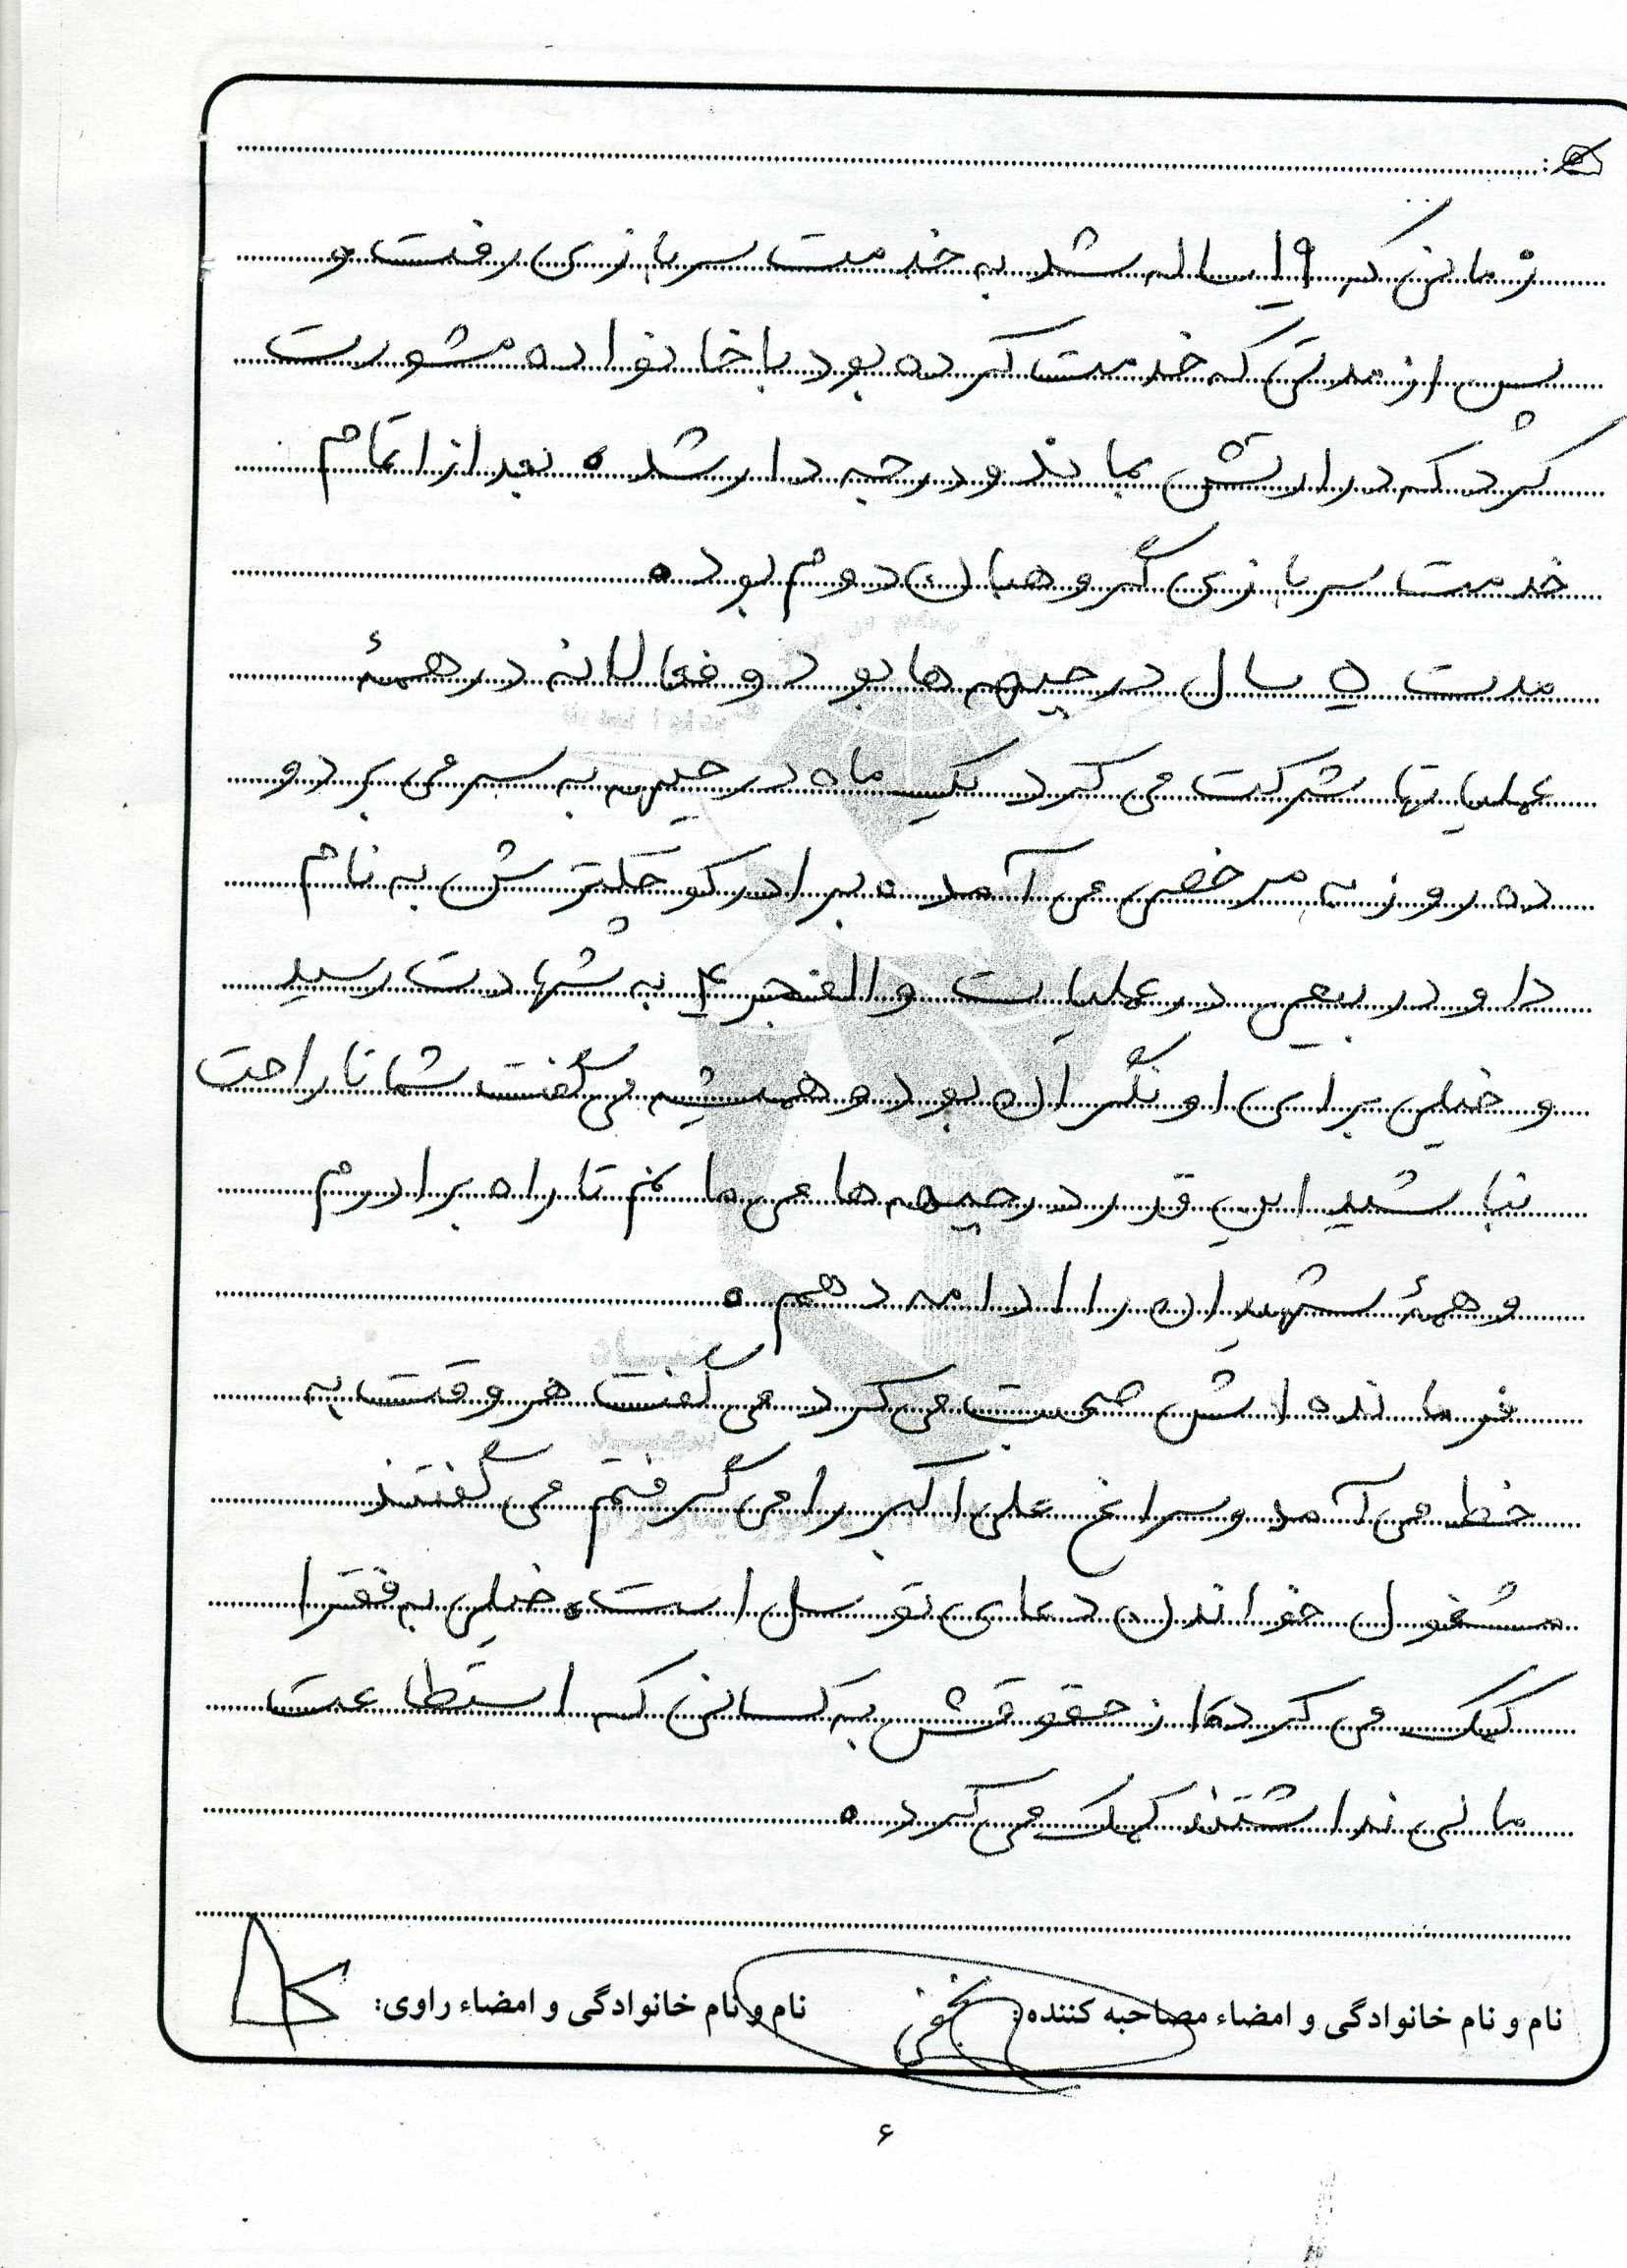 زمانی که ۱۹ ساله شد به خدمت سربازی رفت و
پس از مدتی که خدمت کرده بود با خانواده مشورت
کرد که در ارتش بماند و درجه دار شد. بعد از اتمام
خدمت سربازی گروهبان دوم بود.
مدت ۵ سال در جبهه ها بود و فعالانه در همهٔ
عملیاتها شرکت می کرد یک ماه در جبهه به سر می برد و
ده روز به مرخصی می آمد. برادر کوچکترش به نام
داود ربیعی در عملیات والفجر ۴ به شهادت رسید
و خیلی برای او نگران بود و همیشه می گفت شما ناراحت
نباشید این قدر در جبهه ها می مانم تا راه برادرم
و همهٔ شهیدان را ادامه دهم.
فرمانده اش صحبت می کرد می گفت هر وقت به
خط می آمد و سراغ علی اکبر را می گرفتم می گفتند
مشغول خواندن دعای توسل است. خیلی به فقرا
کمک می کرد. از حقوقش به کسانی که استطاعت
مالی نداشتند کمک می کرد.
نام و نام خانوادگی و امضاء مصاحبه کننده: نام و نام خانوادگی و امضاء راوی:
۶